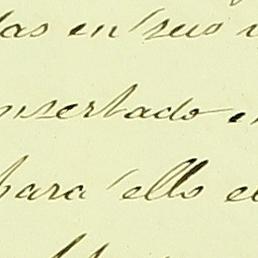 das en sus
nsertado
para ello e